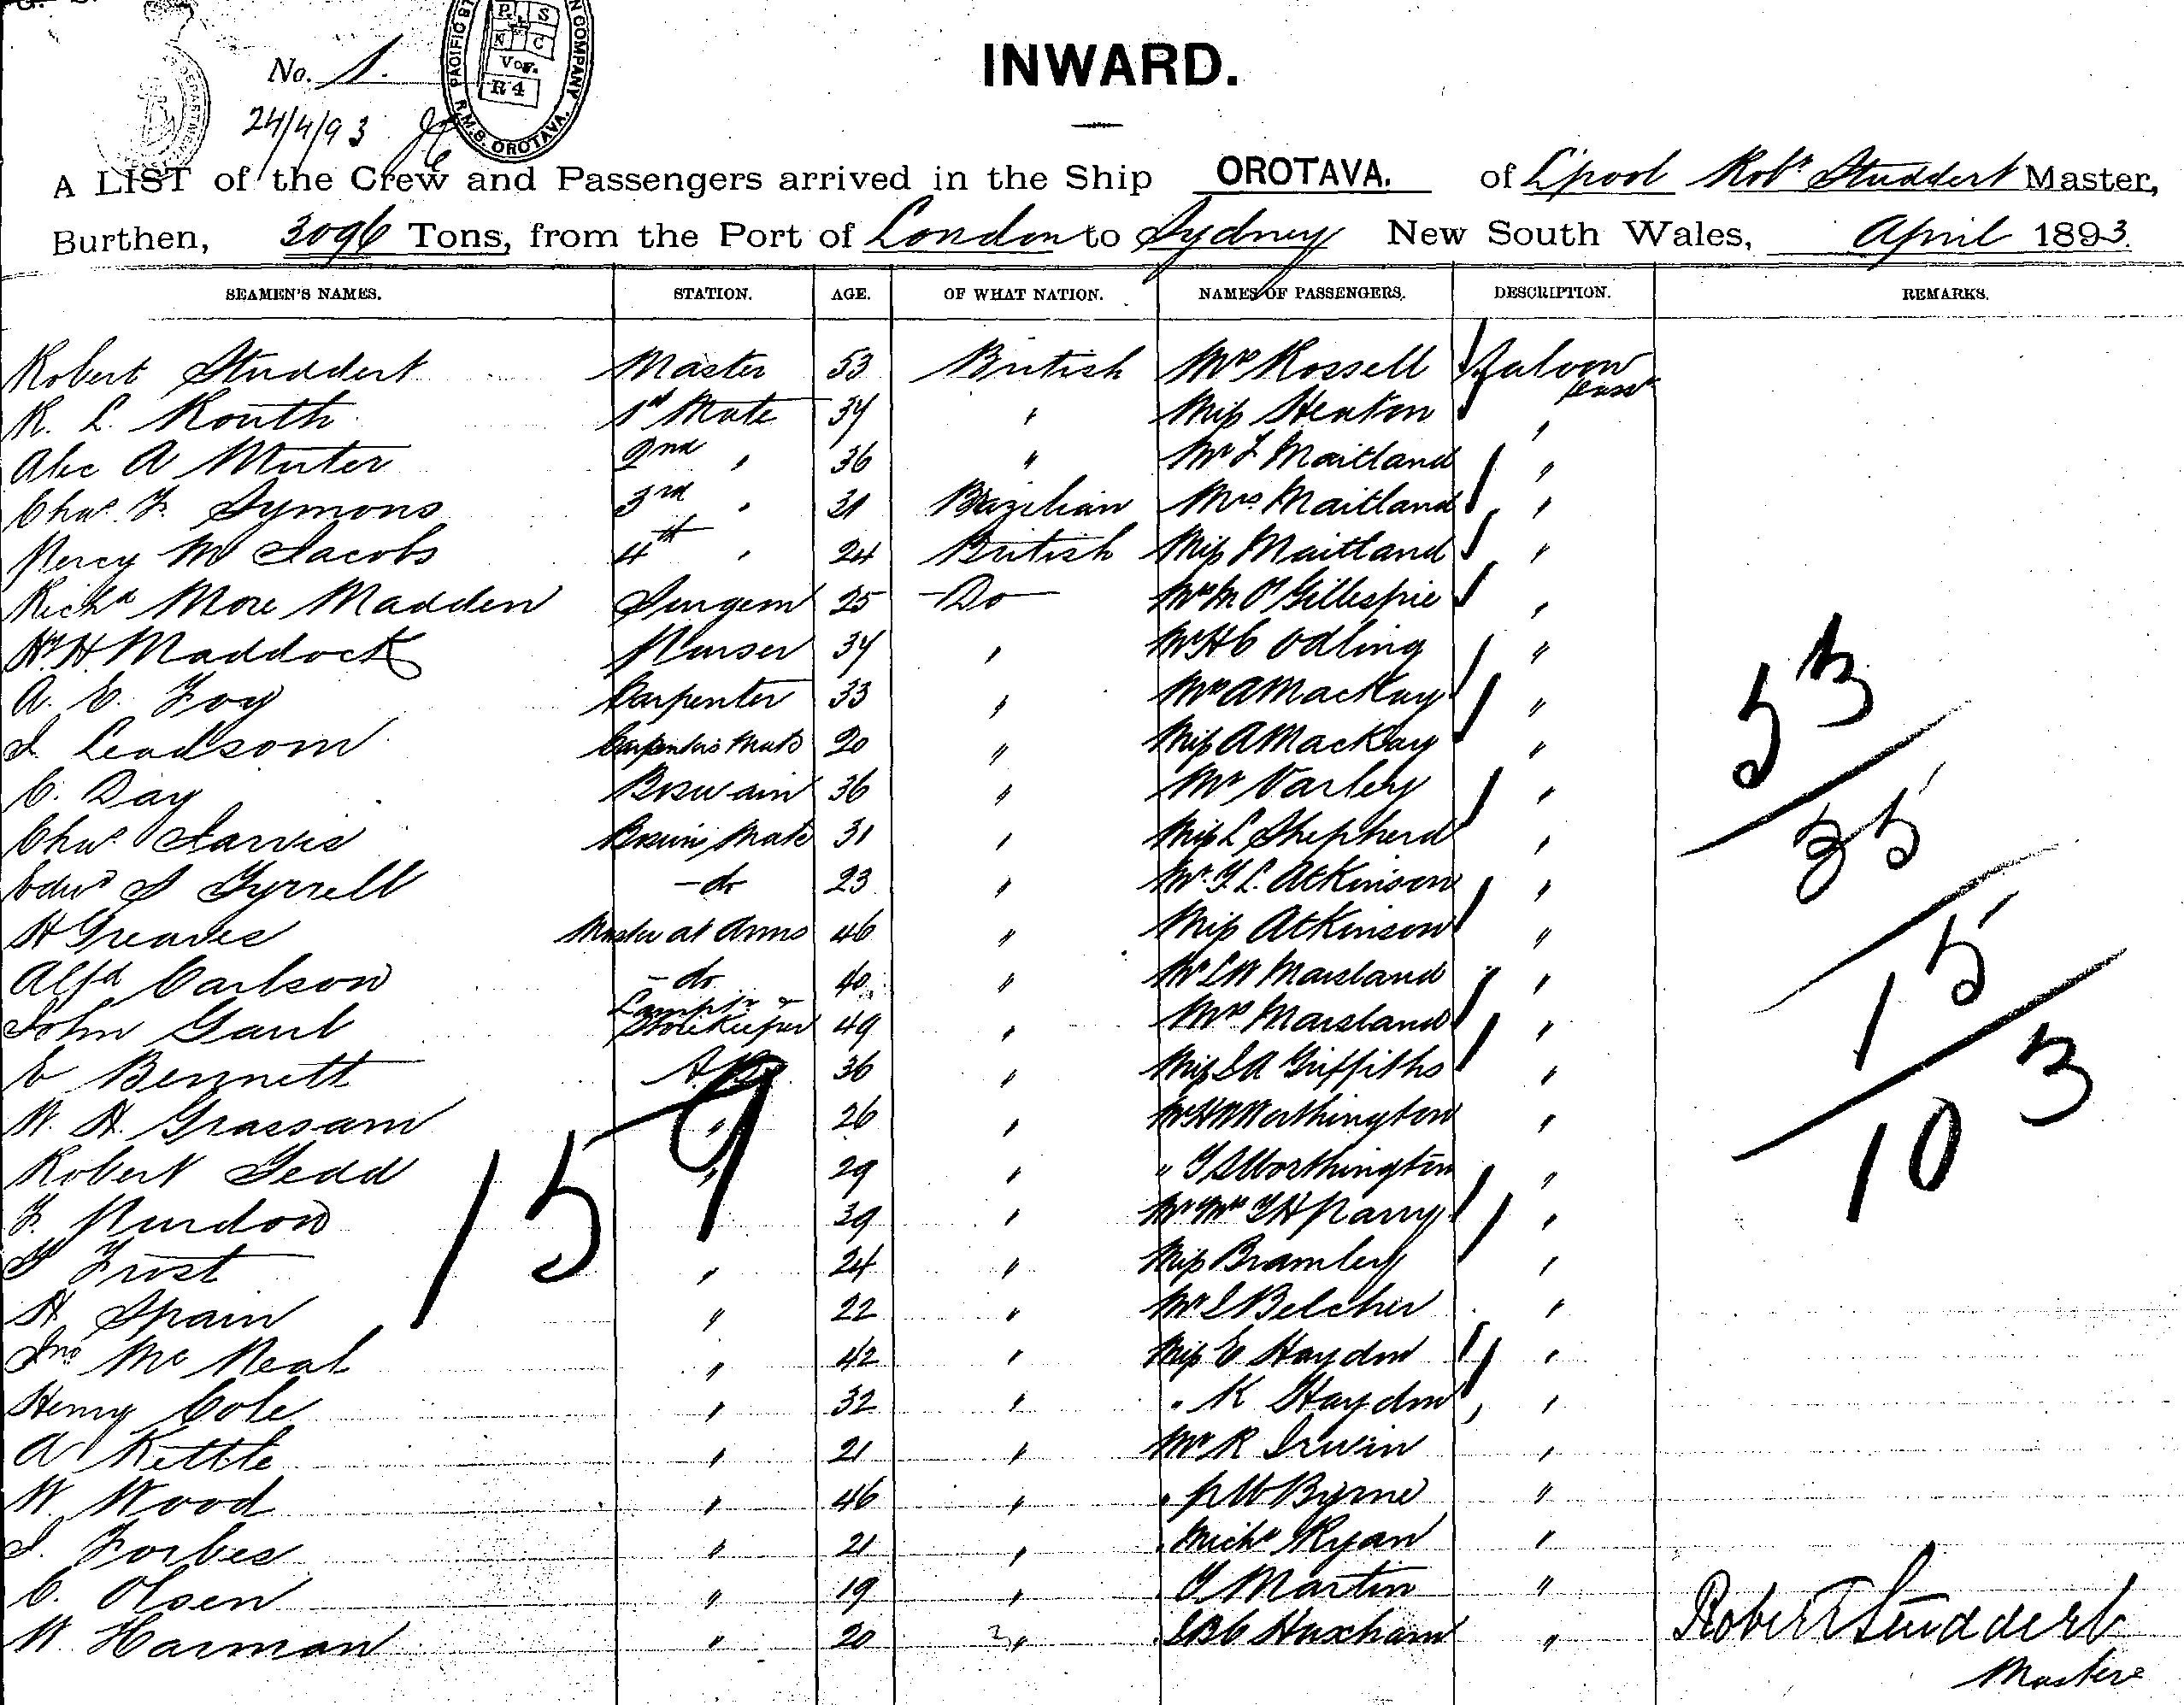 No. 1.
24/4/93
PACIFIC ST N COMPANY
P S
N C
Voy.
R 4
R.M.S. OROTAVA.
DEPARTMENT
INWARD.
A LIST of the Crew and Passengers arrived in the Ship OROTAVA. of L'pool Robt Studdert Master,
Burthen, 3096 Tons, from the Port of London to Sydney New South Wales, April 1893.
SEAMEN'S NAMES. STATION. AGE. OF WHAT NATION. NAMES OF PASSENGERS. DESCRIPTION. REMARKS.
Robert Studdert Master 53 British Mrs Rossell Saloon
R. L. Routh 1st Mate 34 " Miss Heaton "
Alec A Muter 2nd " 36 " Mr F Maitland "
Chas. F. Symons 3rd " 31 Brazilian Mrs Maitland "
Percy M Jacobs 4th " 24 British Miss Maitland "
Richd More Madden Surgeon 25 - Do - Gillespie "
H. Maddock Purser 34 " Mr H C Odling "
A. E. Foy Carpenter 33 " Mrs A MacKay "
J. Leadsom Carpenters Mate 20 " Miss A MacKay "
C. Day Boswain 36 " Mr Varley "
Chas. Jarvis Bosuns Mate 31 " Miss L Shepherd "
Edwd J Tyrrell - do 23 " Mr. F. L. Atkinson "
H Greaves Master at Arms 46 " Miss Atkinson "
Alfd Carlson - do 40 " Marsland "
John Gant Lamps & Storekeeper 49 " Mrs Marsland "
E Bennett A.B. 36 " Miss S A Griffiths "
W. H. Grassam " 26 " Worthington "
Robert Tedd " 29 " " Worthington "
F. Purdow 39 " Mr Mrs T H Parry "
T Frost " 24 " Miss Bramley "
H Spain " 22 " Mr S Belcher "
Jno Mc Neal " 42 " Miss E Haydon "
Henry Cole " 32 " " K Haydon "
A Kettle " 21 " Mr R Irwin "
W. Wood " 46 " " P W Byrne "
J. Forbes " 21 " " Michl Ryan "
C. Olsen " 19 " " J Martin "
W. Harman " 20 " " Huxham "
159
53
35
15
103
Robert Studdert
Master